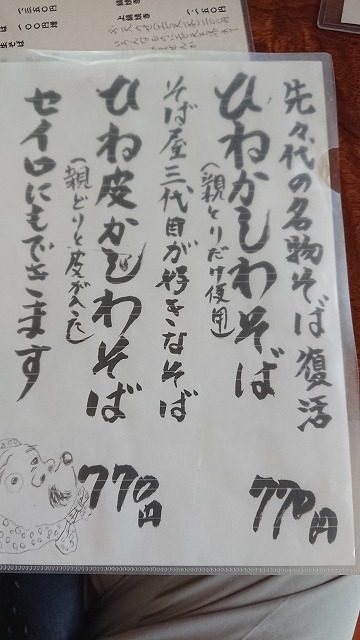 先々代の名物そば復活
ひねかしわそば
(親とりだけ使用)
770円
そば屋三代目が好きなそば
ひね皮かしわそば
(親どりと皮が入った)
770円
セイロにもできます